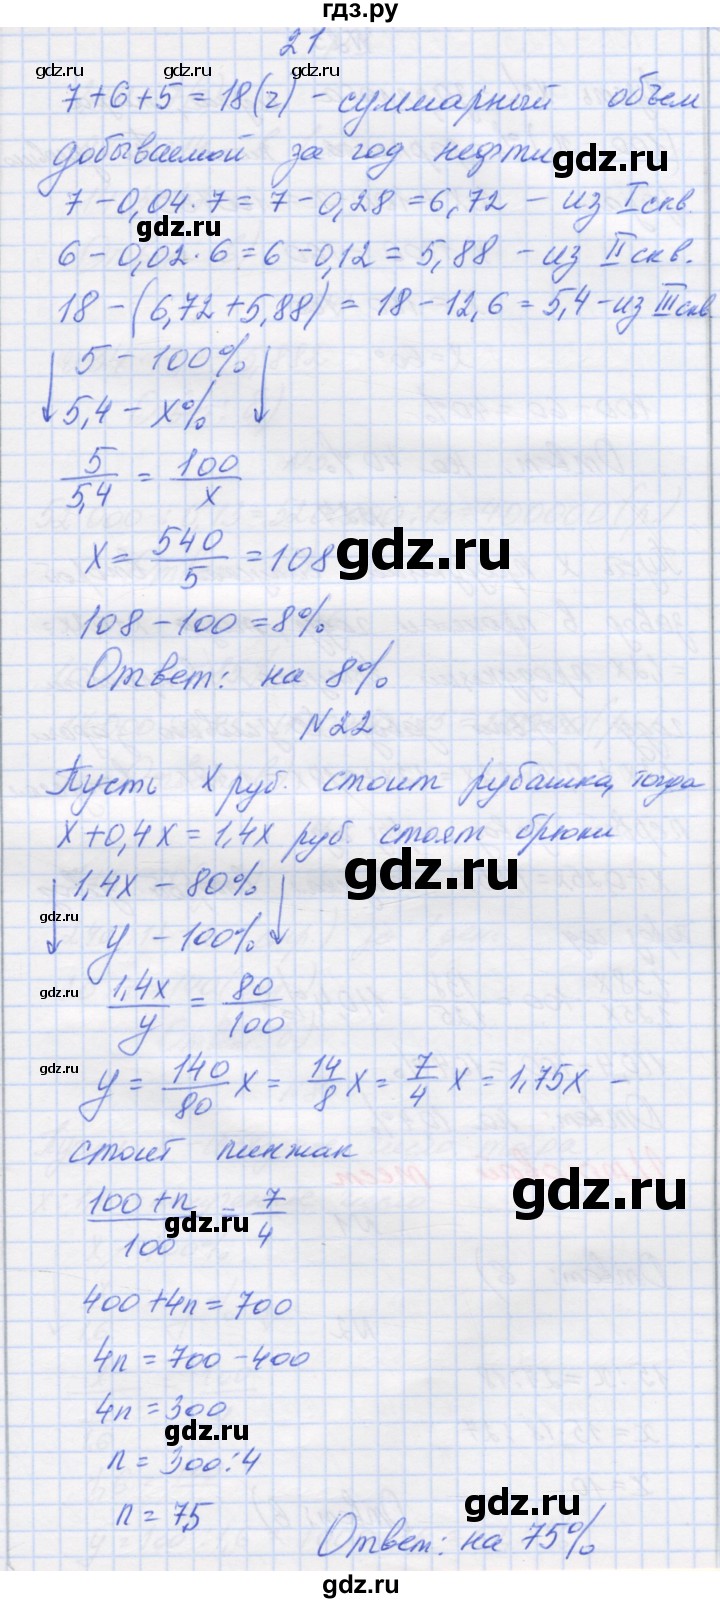 гдз.ру
21
gdz.ru gdz.ru gdz.ru
7+6+5=18(2) - суммарный объем
добываемой за год нефти
gdz.ru
7-0,04·7=7-0,28=6,72 - из I скв.
gdz.ru
6-0,02·6=6-0,12=5,88 - из II скв.
18-(6,72+5,88)=18-12,6=5,4-из III скв
5 - 100%
5,4 - x%
5/5,4 = 100/x
x = 540/5 = 108
gdz.ru
108-100=8%
Ответ: на 8%
N22
Пусть x руб. стоит рубашка, тогда
x+0,4x=1,4x руб. стоят брюки
gdz.ru
1,4x - 80%
gdz.ru
y - 100%
gdz.ru
1,4x/y = 80/100
gdz.ru
y = 140/80 x = 14/8 x = 7/4 x = 1,75x -
стоит пинжак
gdz.ru
(100+n)/100 = 7/4
gdz.ru
400+4n=700
4n=700-400
4n=300
gdz.ru
n=300:4
gdz.ru
n=75
Ответ: на 75%
gdz.ru